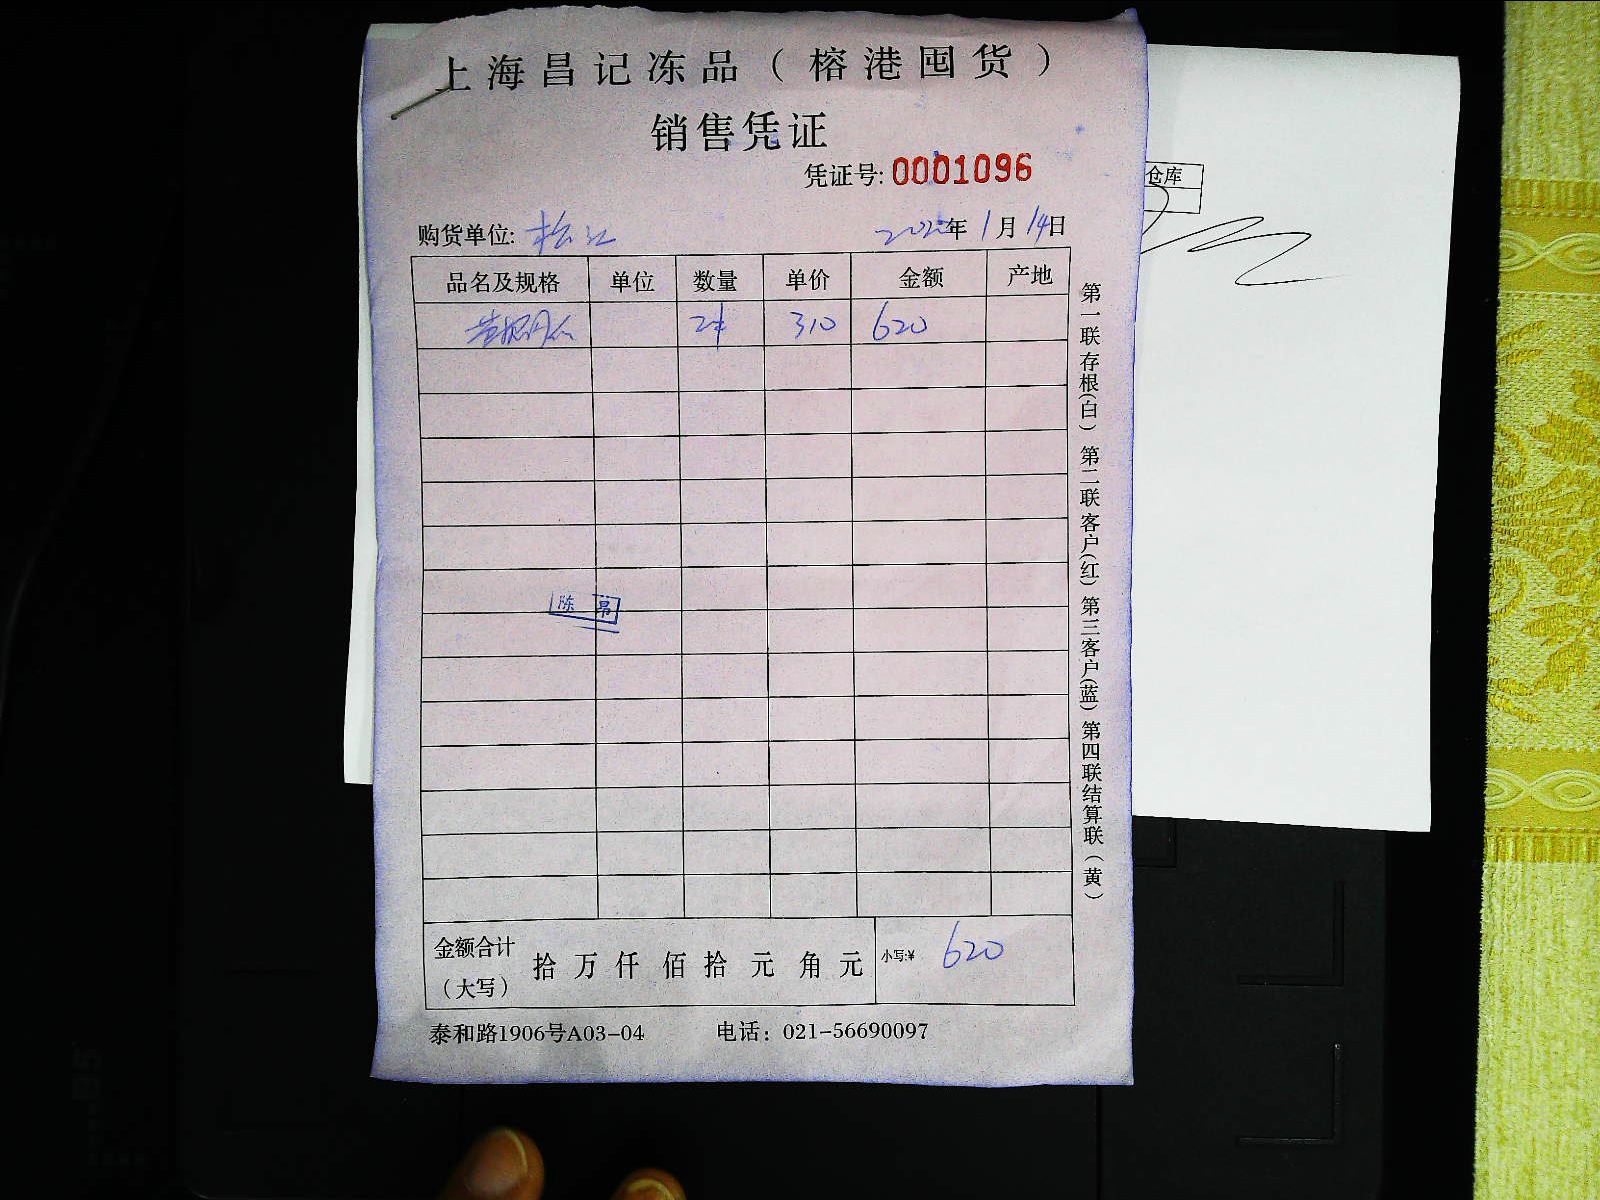 上海昌记冻品（榕港囤货）
销售凭证
凭证号: 0001096
仓库
购货单位: 松江 年 1月 14日
品名及规格 单位 数量 单价 金额 产地
2件 310 620
陈 昂
金额合计（大写） 拾 万 仟 佰 拾 元 角 元 小写:¥ 620
泰和路1906号A03-04 电话：021-56690097
第一联存根(白) 第二联客户(红) 第三客户(蓝) 第四联结算联（黄）